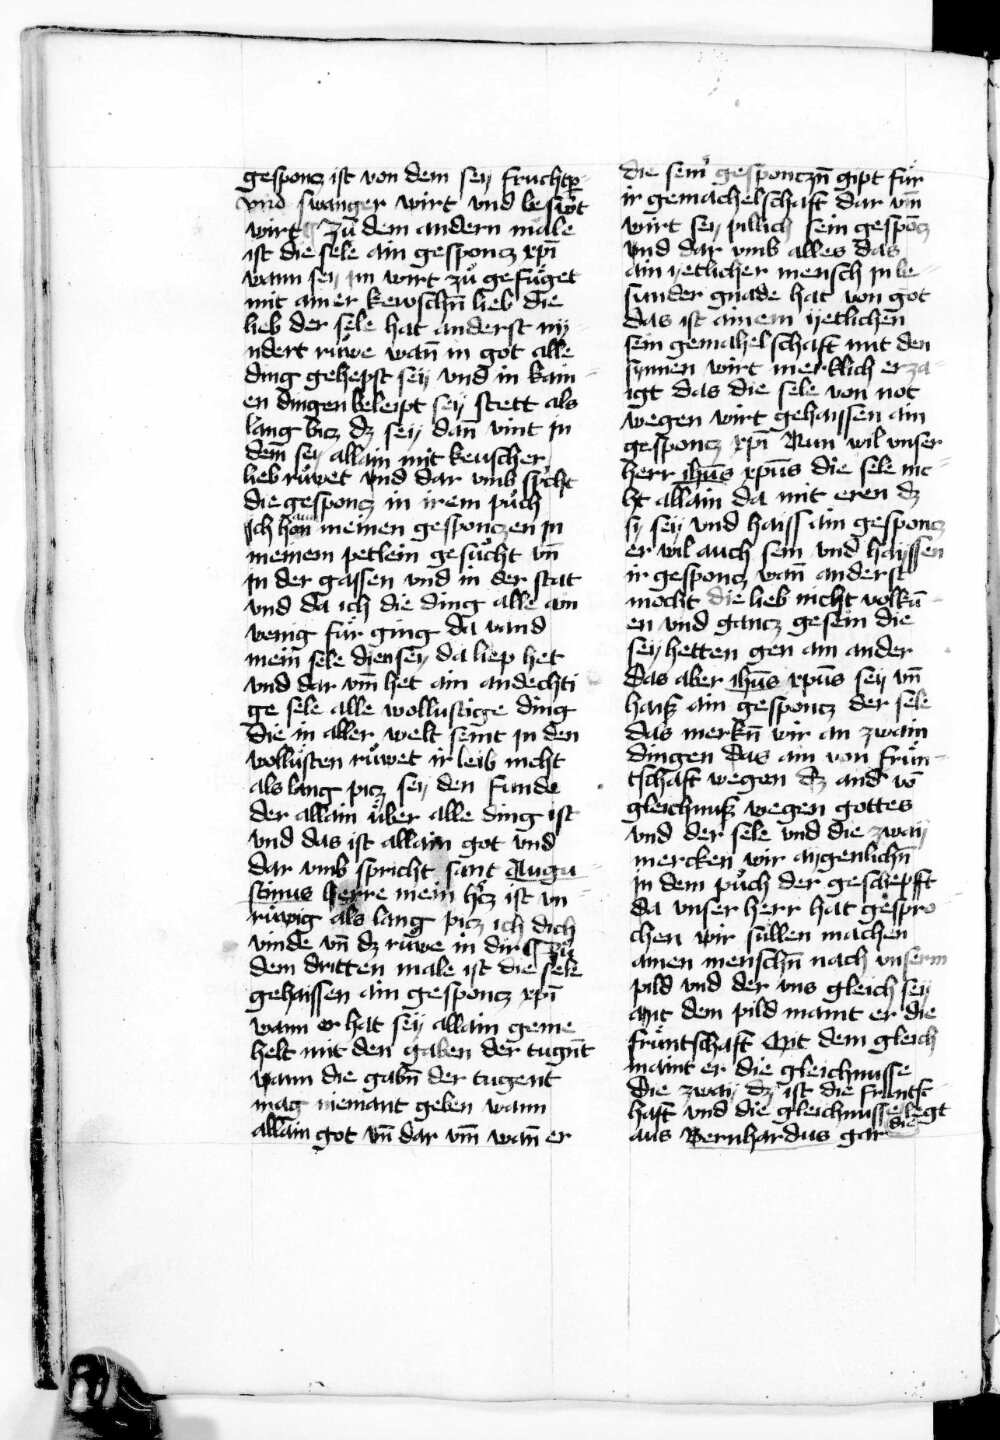 gesponcz ist von dem sey fruchtp̄
vnd swanger wirt vnd beswͤrt
wirt Zů dem andern male
ist die sele ain gesponcz xp̄i
wann sey im wirt zů gefuͤget
mit ainer kewschn̄ lieb die
lieb der sele hat anderst ny
ndert růwe wan̄ in got alle
ding gehepst sey vnd in kain
en dingen beleipt sey stett als
lang bicz dz sey dan̄ vint in
dem̄ sey allain mit keuscher
lieb růwet vnd dar vmb sp̄cht
die gesponcz in irem půch
Ich hon meinen gesponczen in
meinem petlein gesůcht vn̄
in der gassen vnd in der stat
vnd da ich die ding alle ain
wenig fuͤr ging da vand
mein̄ sele dien sey da liep het
vnd dar vm̄ het ain andechti
ge sele alle wollustige ding
die in aller welt seint in den
wollusten růwet ir leib nicht
als lang picz sey den funde
der allain uͤber alle ding ist
vnd das ist allain got vnd
dar vmb spricht sant Augu
stinus herre mein hc̄z ist vn
růwig als lang picz ich dich
vinde vn̄ dz růwe in dir Zů
dem dritten male ist die sele
gehaissen ain gesponcz xp̄i
wann er hat sey allain geme
helt mit den gaben der tugn̄t
wann die gabn̄ der tugent
mag niemant geben wann
allain got vn̄ dar vm̄ wan̄ er
die seinͤ gesponczn̄ gipt fuͤr
ir gemachelschaft dar vm̄
wirt sey pillich sein gespōcz
vnd dar vmb alles das
ain yetlicher mensch in be
sunder gnade hat von got
das ist ainem yetlichen̄
sein gemahelschaft mit den
synnen wirt merklich erza
igt das die sele von not
wegen wirt gehaissen ain
gesponcz xp̄i Nun wil vnser
herr ih̄us xp̄us die sele nic
ht allain da mit eren dz
sy sey vnd haiss ain gesponcz
er wil auch sein vnd hayssen
ir gesponcz wan̄ anderst
mocht die lieb nicht volkū
en vnd gancz gesein die
sey hetten gen ain ander
das aber ih̄us xp̄us sey vn̄
haiß ain gesponcz der sele
das merkn̄ wir an zwain
dingen das ain von fruͤn
tschaft wegen dz and̄ vō
gleichnuß wegen gottes
vnd der sele vnd die zway
mercken wir aygenlichn̄
in dem půch der geschepfft
da vnser herr hat gespro
chen wir sullen machen
ainen menschn̄ nach vnserm
pild vnd der vns gleich sey
mit dem pild maint er die
fruͤntschaft Mit dem gleich
maint er die gleichnusse
Die zway dz ist die fruntsc
haft vnd die gleichnusse legt
aus Bernhardus gar die